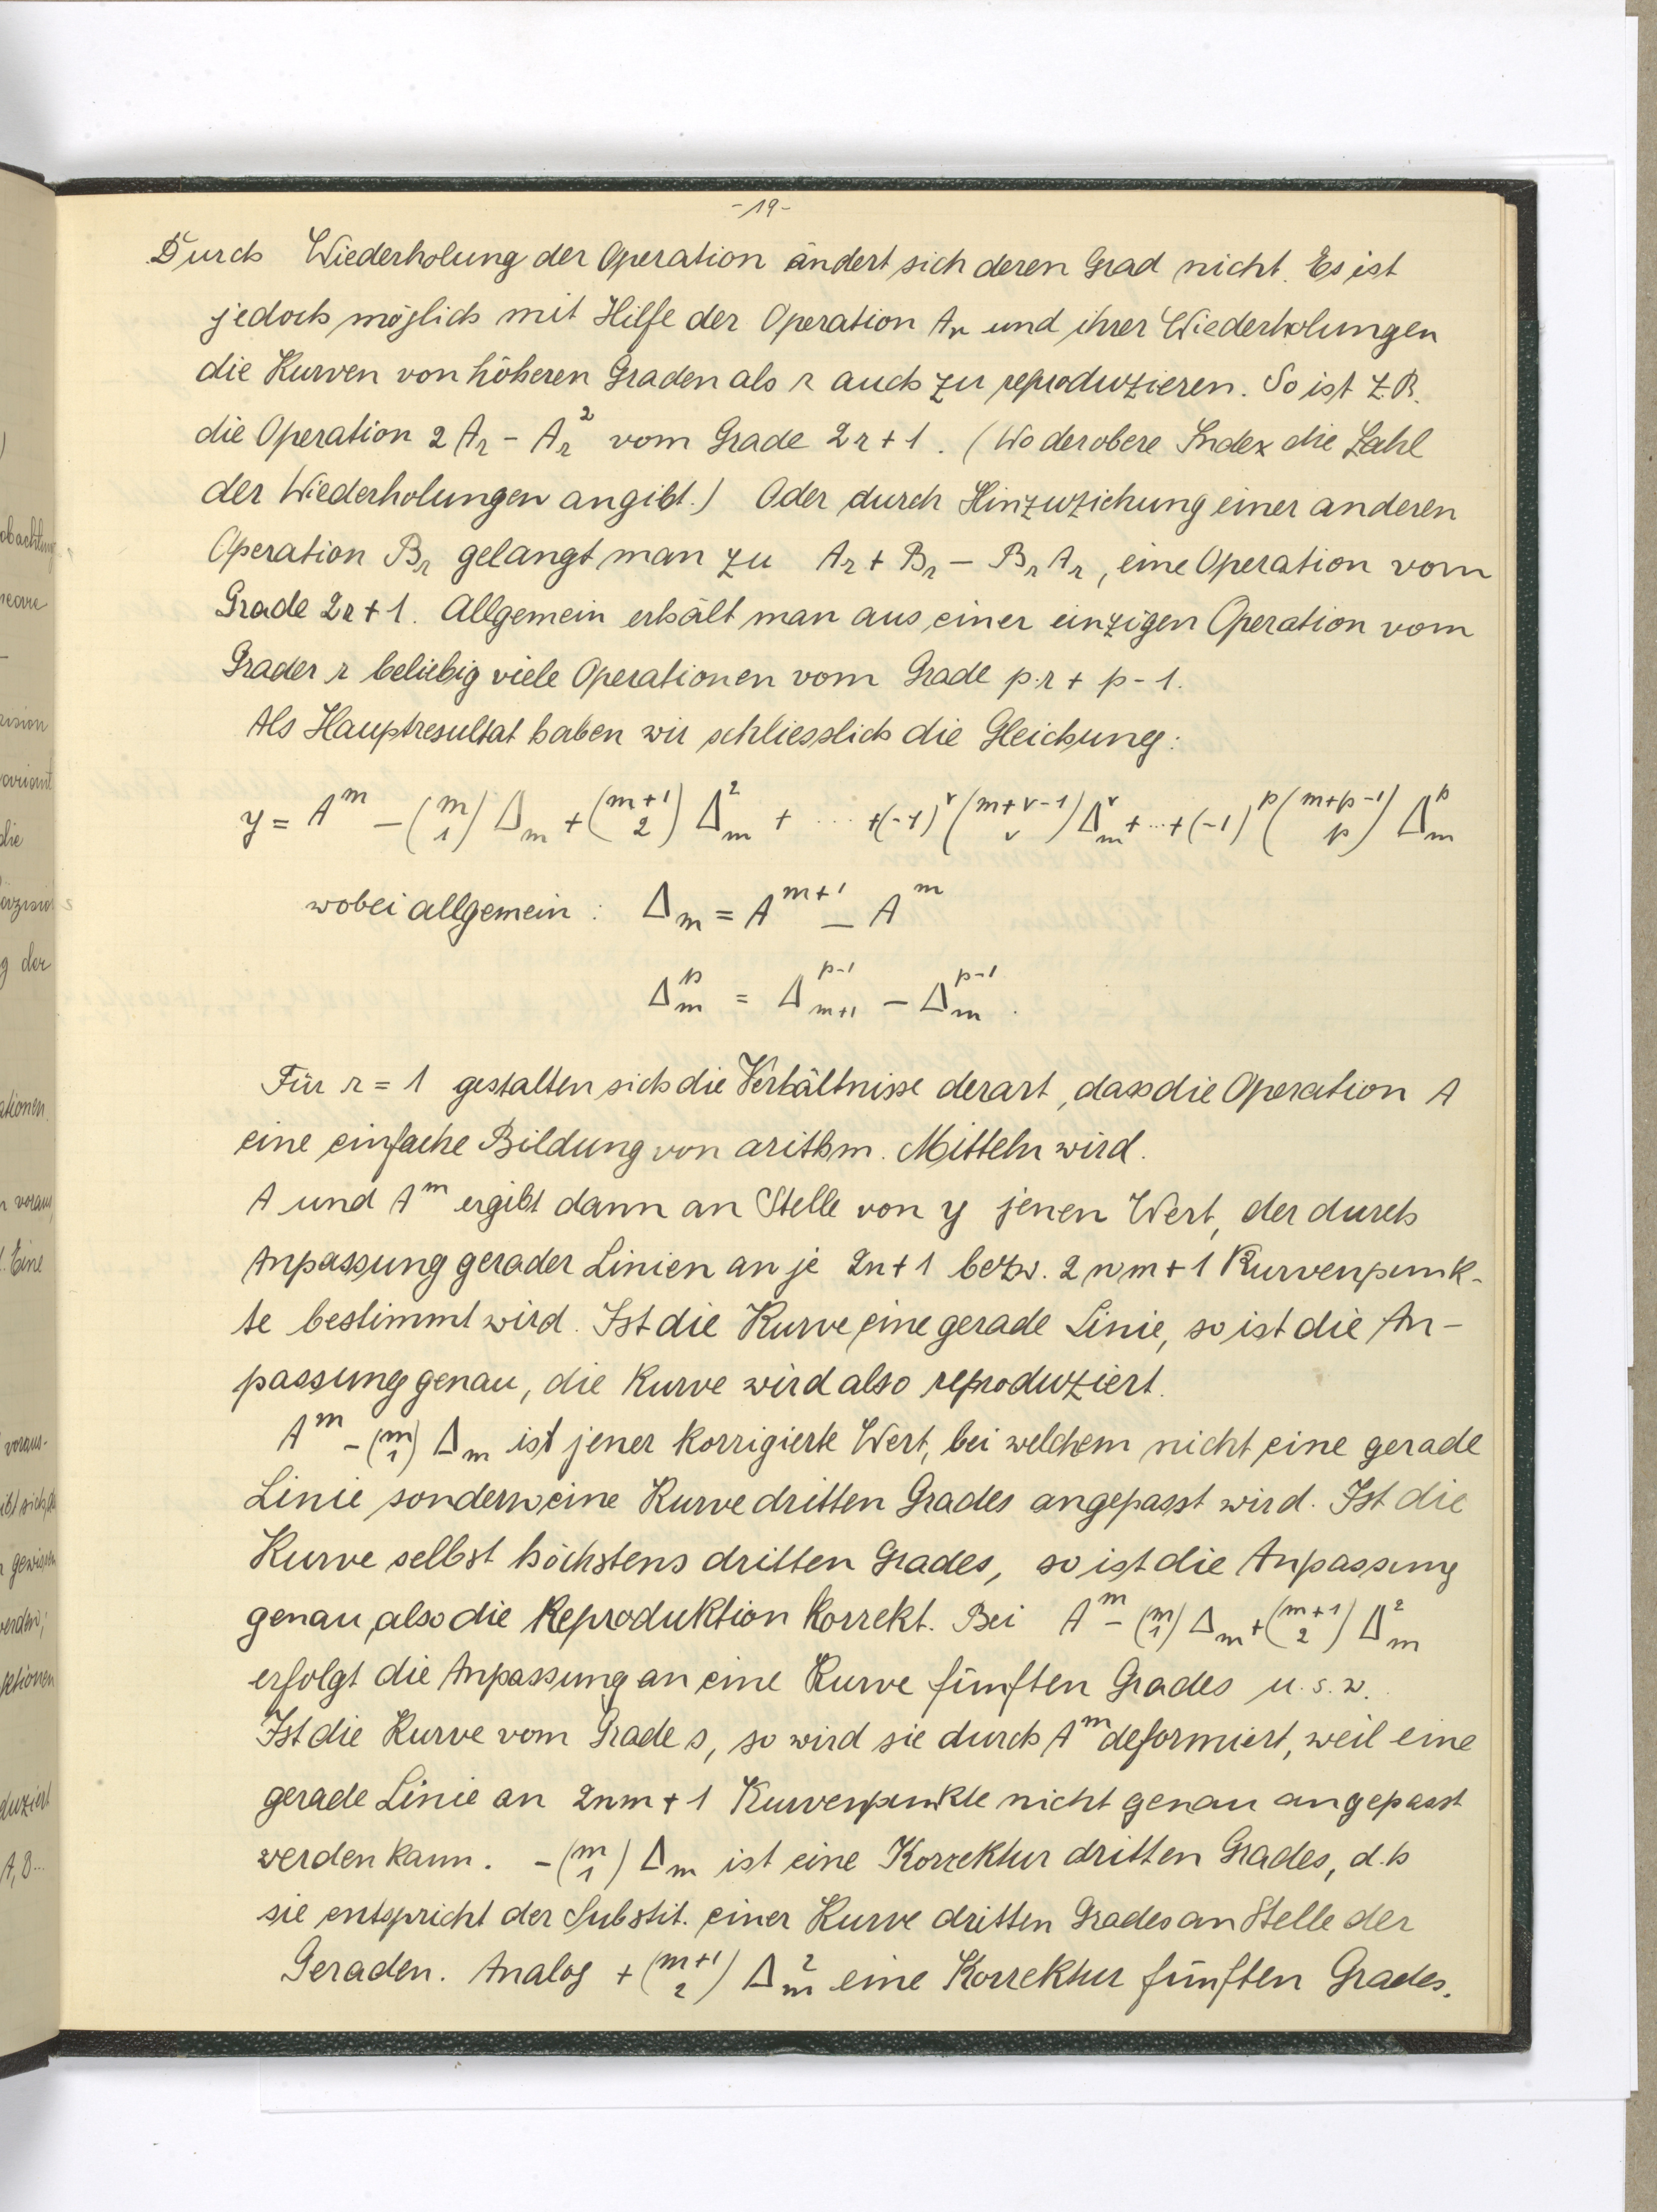 -19-
Durch Wiederholung der Operation ändert sich deren Grad nicht. Es ist
jedoch möglich mit Hilfe der Operation Aᵣ und ihrer Wiederholungen
die Kurven von höheren Graden als r auch zu reproduzieren. So ist z.B.
die Operation 2 Aᵣ - Aᵣ² vom Grade 2r + 1. (Wo der obere Index die Zahl
der Wiederholungen angibt.) Oder durch Hinzuziehung einer anderen
Operation Bᵣ gelangt man zu Aᵣ + Bᵣ - BᵣAᵣ, eine Operation vom
Grade 2r + 1. Allgemein erhält man aus einer einzigen Operation vom
Grader r beliebig viele Operationen vom Grade p.r + p - 1.
Als Hauptresultat haben wir schliesslich die Gleichung:
y = A^m - (m 1) Δ_m + (m+1 2) Δ_m^2 + .... +(-1)^ν (m+ν-1 ν) Δ_m^ν + ... + (-1)^p (m+p-1 p) Δ_m^p
wobei allgemein: Δ_m = A^{m+1} - A^m
Δ_m^p = Δ_{m+1}^{p-1} - Δ_m^{p-1}.
Für r = 1 gestalten sich die Verhältnisse derart, dass die Operation A
eine einfache Bildung von arithm. Mitteln wird.
A und A^m ergibt dann an Stelle von y jenen Wert, der durch
Anpassung gerader Linien an je 2n+1 bezw. 2nm+1 Kurvenpunk-
te bestimmt wird. Ist die Kurve eine gerade Linie, so ist die An-
passung genau, die Kurve wird also reproduziert.
A^m - (m 1) Δ_m ist jener korrigierte Wert, bei welchem nicht eine gerade
Linie sondern eine Kurve dritten Grades angepasst wird. Ist die
Kurve selbst höchstens dritten Grades, so ist die Anpassung
genau, also die Reproduktion korrekt. Bei A^m - (m 1) Δ_m + (m+1 2) Δ_m^2
erfolgt die Anpassung an eine Kurve fünften Grades u.s.w.
Ist die Kurve vom Grade s, so wird sie durch A^m deformiert, weil eine
gerade Linie an 2nm + 1 Kurvenpunkte nicht genau angepasst
werden kann. - (m 1) Δ_m ist eine Korrektur dritten Grades, d.h
sie entspricht der Substit. einer Kurve dritten Grades an Stelle der
Geraden. Analog + (m+1 2) Δ_m^2 eine Korrektur fünften Grades.